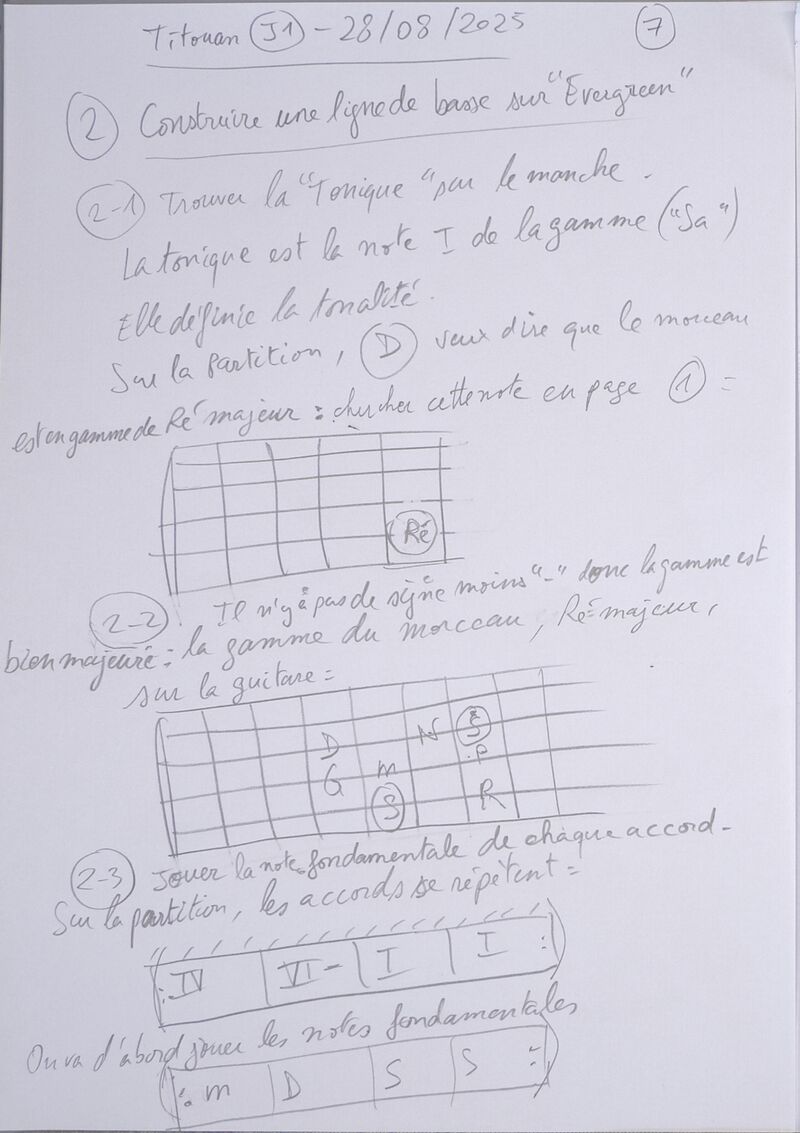 Titouan J1 - 28/08/2025 7
2 Construire une ligne de basse sur "Evergreen"
2-1 Trouver la "Tonique" sur le manche.
La tonique est la note I de la gamme ("Sa")
Elle définie la tonalité.
Sur la partition, D veux dire que le morceau
est en gamme de Ré majeur : chercher cette note en page 1 =
Ré
2-2 Il n'y a pas de signe moins "-" donc la gamme est
bien majeure : la gamme du morceau, Ré majeur,
sur la guitare =
D N S
G m P
S R
2-3 Jouer la note fondamentale de chaque accord.
Sur la partition, les accords se répètent =
: IV VI- I I :
On va d'abord jouer les notes fondamentales
: m D S S :